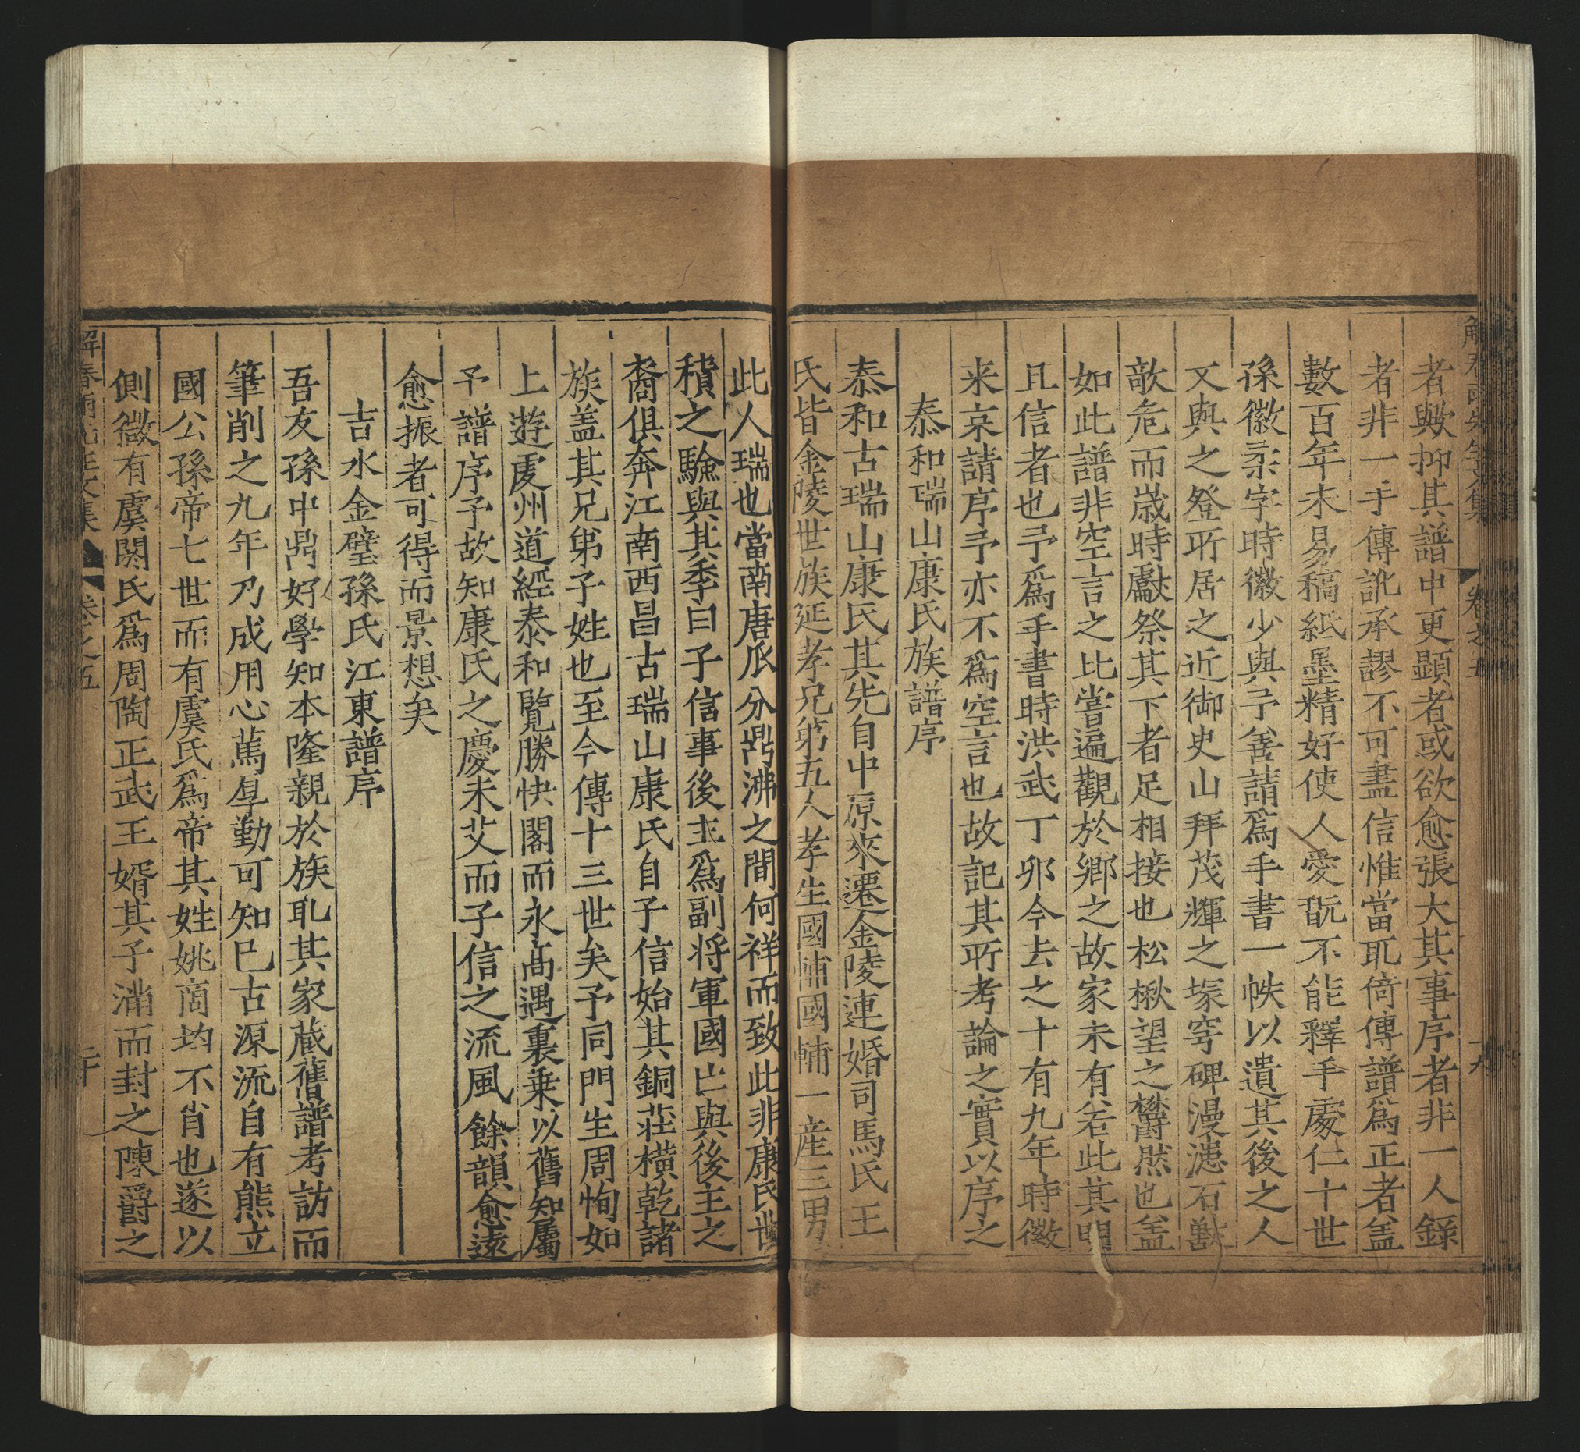 者歟抑其譜中更顯者或欲愈張大其事序者非一人錄
者非一手傳訛承謬不可盡信惟當耴倚傳譜爲正者盖
數百年末易稿紙墨精好使人愛翫不能釋手處仁十世
孫徽宗字時徽少與予善請爲手書一帙以遺其後之人
又與之登所居之近御史山拜茂輝之塚穹碑漫漶石獸
敧危而歳時獻祭其下者足相接也松楸望之欝然也盖
如此譜非空言之比嘗遍觀於鄉之故家未有若此其明
且信者也予爲手書時洪武丁卯今去之十有九年時徽
来京請序予亦不爲空言也故記其所考論之實以序之
泰和瑞山康氏族譜序
泰和古瑞山康氏其先自中原來遷金陵連婚司馬氏王
氏皆金陵世族延孝兄第五人孝生國俌國輔一産三男
此人瑞也當南唐瓜分鼎沸之間何祥而致此非康氏世
積之驗與其季曰子信事後主爲副将軍國亡與後主之
裔俱奔江南西昌古瑞山康氏自子信始其銅莊横乾諸
族盖其兄弟子姓也至今傳十三世矣予同門生周恂如
上遊䖍州道經泰和覽勝快閣而永髙遇裏乗以舊知屬
予譜序予故知康氏之慶未艾而子信之流風餘韻愈遠
愈振者可得而景想矣
吉水金璧孫氏江東譜序
吾友孫中鼎好學知本隆親於族耴其家藏舊譜考訪而
筆削之九年乃成用心蔫𠪋勤可知已古源流自有熊立
國公孫帝七世而有虞氏爲帝其姓姚商均不肖也遂以
側微有虞閼氏爲周陶正武王婿其子滿而封之陳爵之
解春雨先生文集 卷之五 二十